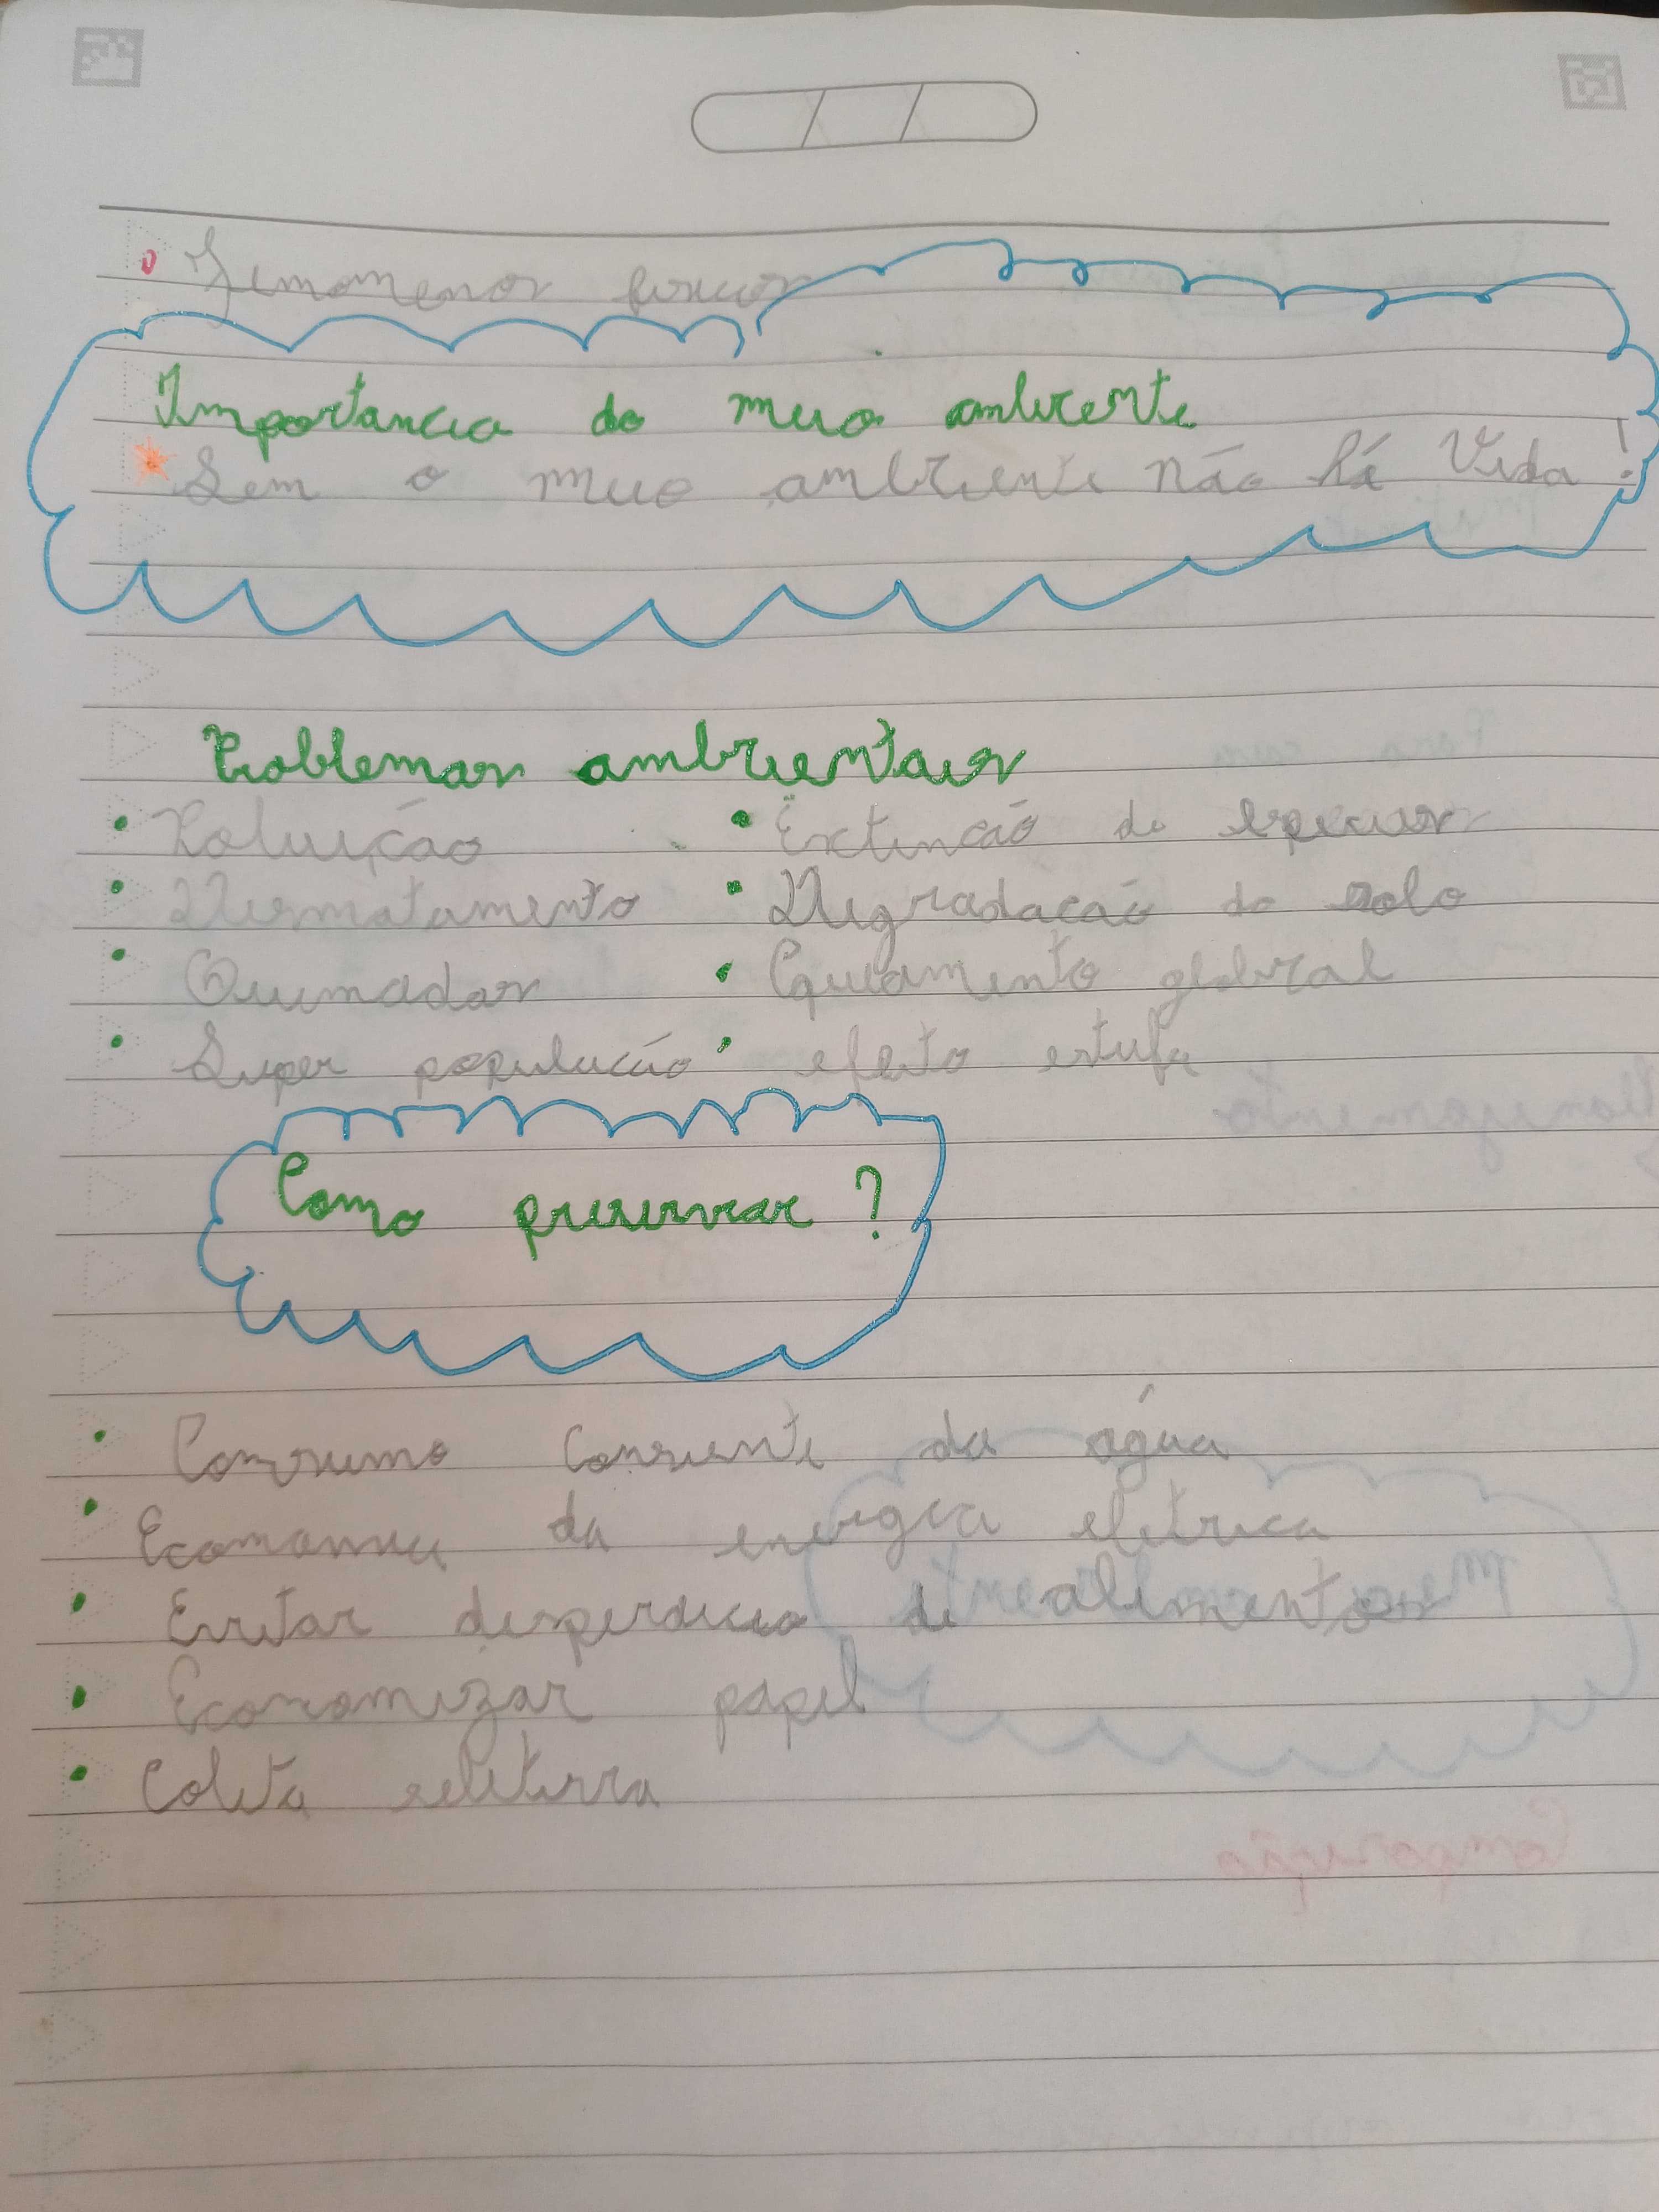 • Fenomenos fisicos
Importancia do meio ambiente
* Sem o meio ambiente não há vida!
Problemas ambientais
• Poluição • Extinção de especies
• Desmatamento • Degradacaó do solo
• Queimadas • Equecimento global
• Super população • efeito estufa
Como preservar ?
• Consumo consiente da água
• Economia da energia eletrica
• Evitar desperdicio de alimentos
• Economizar papel
• Coleta seletiva